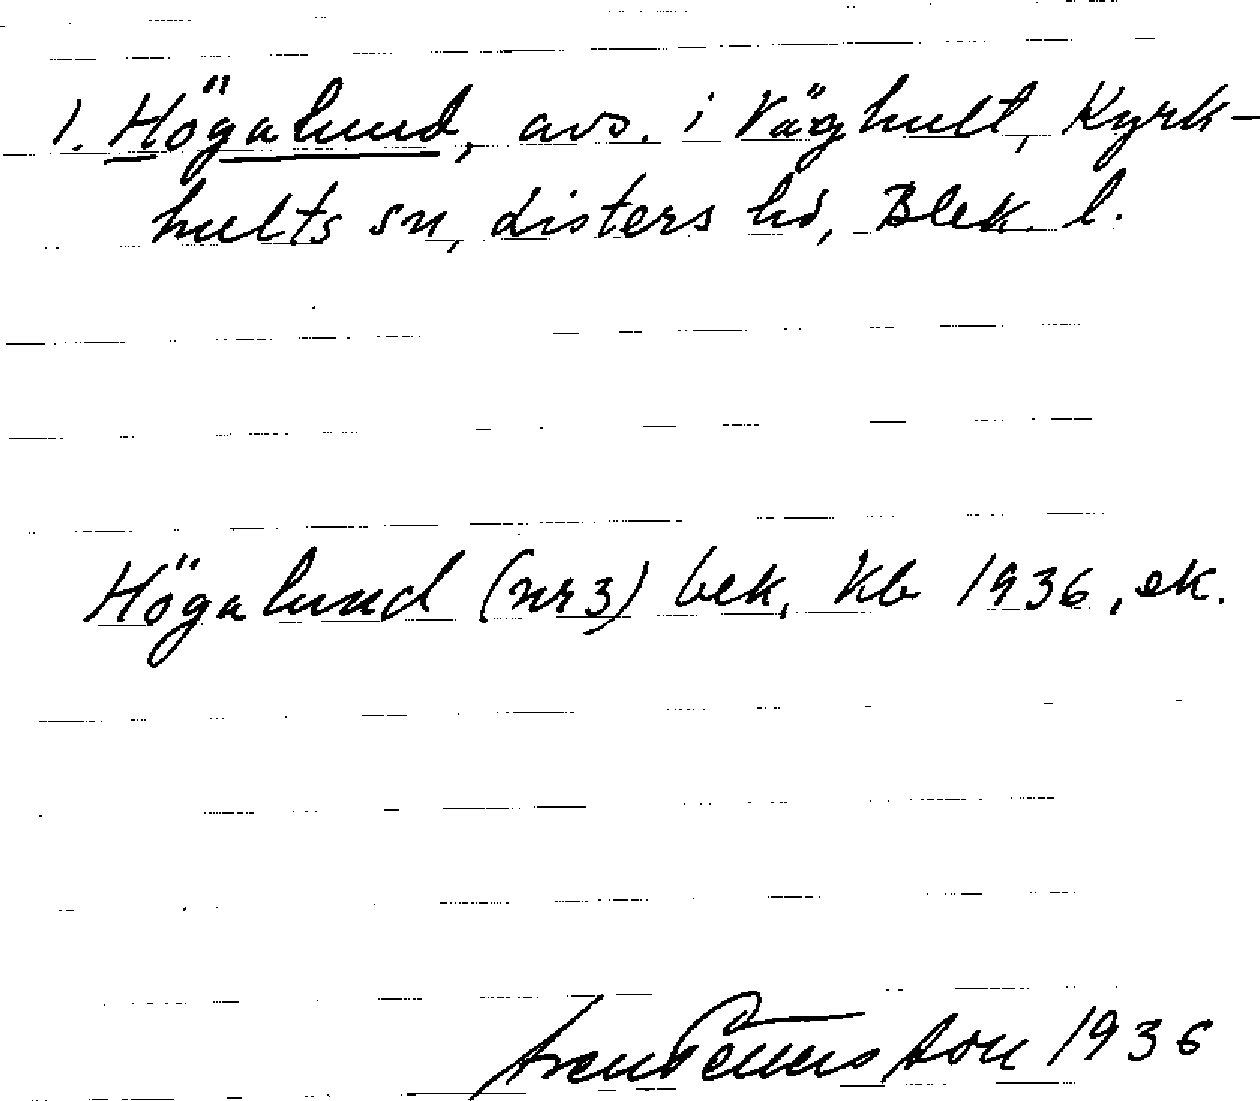 1. Högalund, avs. i Väghult, Kyrk-
hults sn, Listers hd, Blek. l.
Högalund (nr 3) bek, Kb 1936, ek.
1936